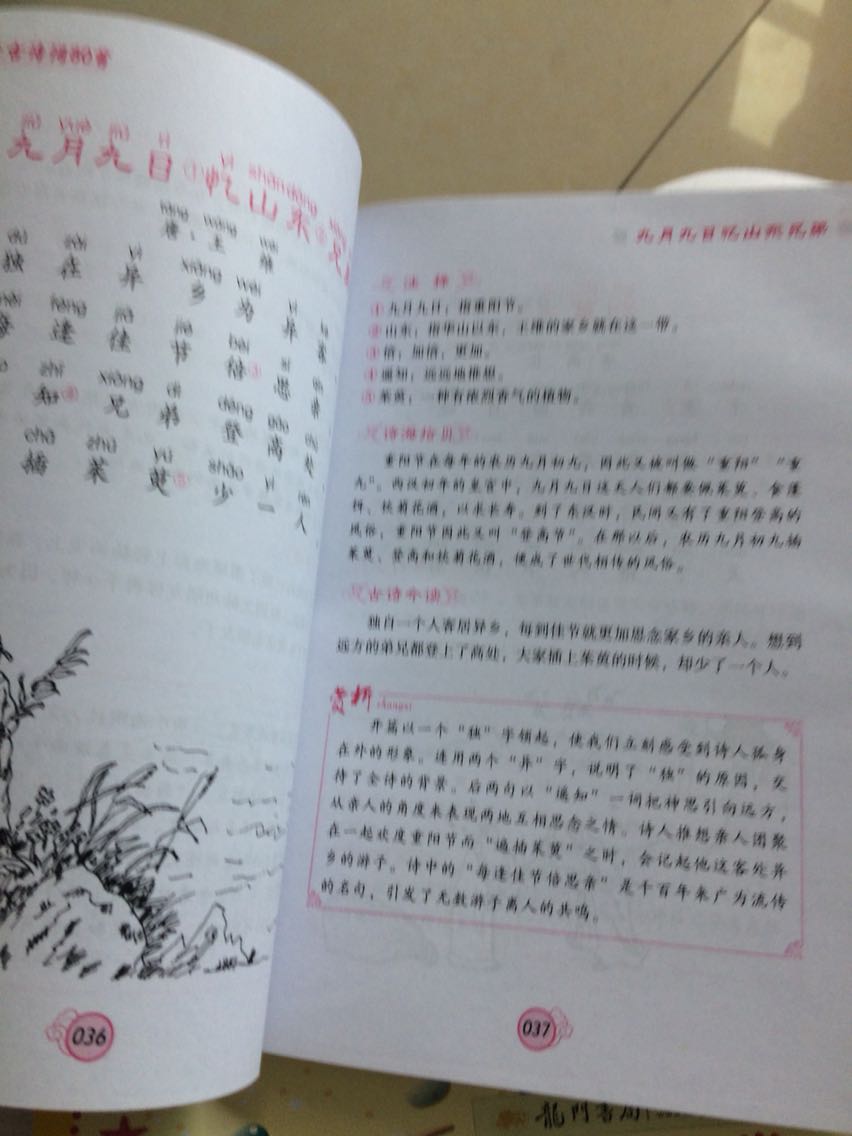 古诗词80首
jiǔ yuè jiǔ rì yì shān dōng
九月九日①忆山东②兄
táng wáng wéi
唐·王 维
dú zài yì xiāng wéi yì
独在异乡为异客
féng jiā jié bèi sī
逢佳节倍③思亲
zhī xiōng dì dēng gāo
知④兄弟登高处
chā zhū yú shǎo yì
插茱萸⑤少一人
036
九月九日忆山东兄弟
注 释
①九月九日：指重阳节。
②山东：指华山以东，王维的家乡就在这一带。
③倍：加倍，更加。
④遥知：远远地推想。
⑤茱萸：一种有浓烈香气的植物。
诗海拾贝
重阳节在每年的农历九月初九，因此又被叫做“重阳”“重
九”。西汉初年的皇宫中，九月九日这天人们都要佩茱萸、食蓬
饵、饮菊花酒，以求长寿。到了东汉时，民间又有了重阳登高的
风俗，重阳节因此又叫“登高节”。在那以后，农历九月初九插
茱萸、登高和饮菊花酒，便成了世代相传的风俗。
古诗今读
独自一个人客居异乡，每到佳节就更加思念家乡的亲人。想到
远方的弟兄都登上了高处，大家插上茱萸的时候，却少了一个人。
赏析 shangxi
开篇以一个“独”字领起，使我们立刻感受到诗人孤身
在外的形象。连用两个“异”字，说明了“独”的原因，交
待了全诗的背景。后两句以“遥知”一词把神思引向远方，
从亲人的角度来表现两地互相思念之情。诗人推想亲人团聚
在一起欢度重阳节而“遍插茱萸”之时，会记起他这客处异
乡的游子。诗中的“每逢佳节倍思亲”是千百年来广为流传
的名句，引发了无数游子离人的共鸣。
037
龍門書局